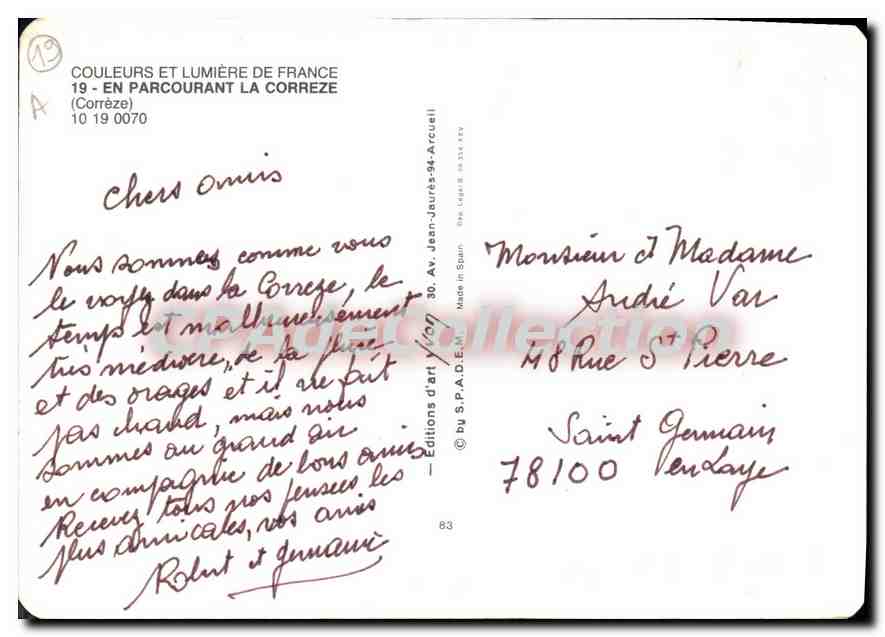 19
A
COULEURS ET LUMIÈRE DE FRANCE
19 - EN PARCOURANT LA CORREZE
(Corrèze)
10 19 0070
Chers amis
Nous sommes comme vous
le voyez dans la Correze, le
temps est malheureusement
très médiocre, de la pluie
et des orages et il ne fait
pas chaud, mais nous
sommes au grand air
en compagnie de bons amis
Recevez tous nos pensées les
plus amicales, vos amis
Robert et Germaine
— Editions d'art Yvon 30, Av. Jean-Jaurès-94-Arcueil
© by S.P.A.D.E.M. Made in Spain
83
Monsieur et Madame
André Var
48 Rue St Pierre
Saint Germain
78100 en Laye
CPA de Collection